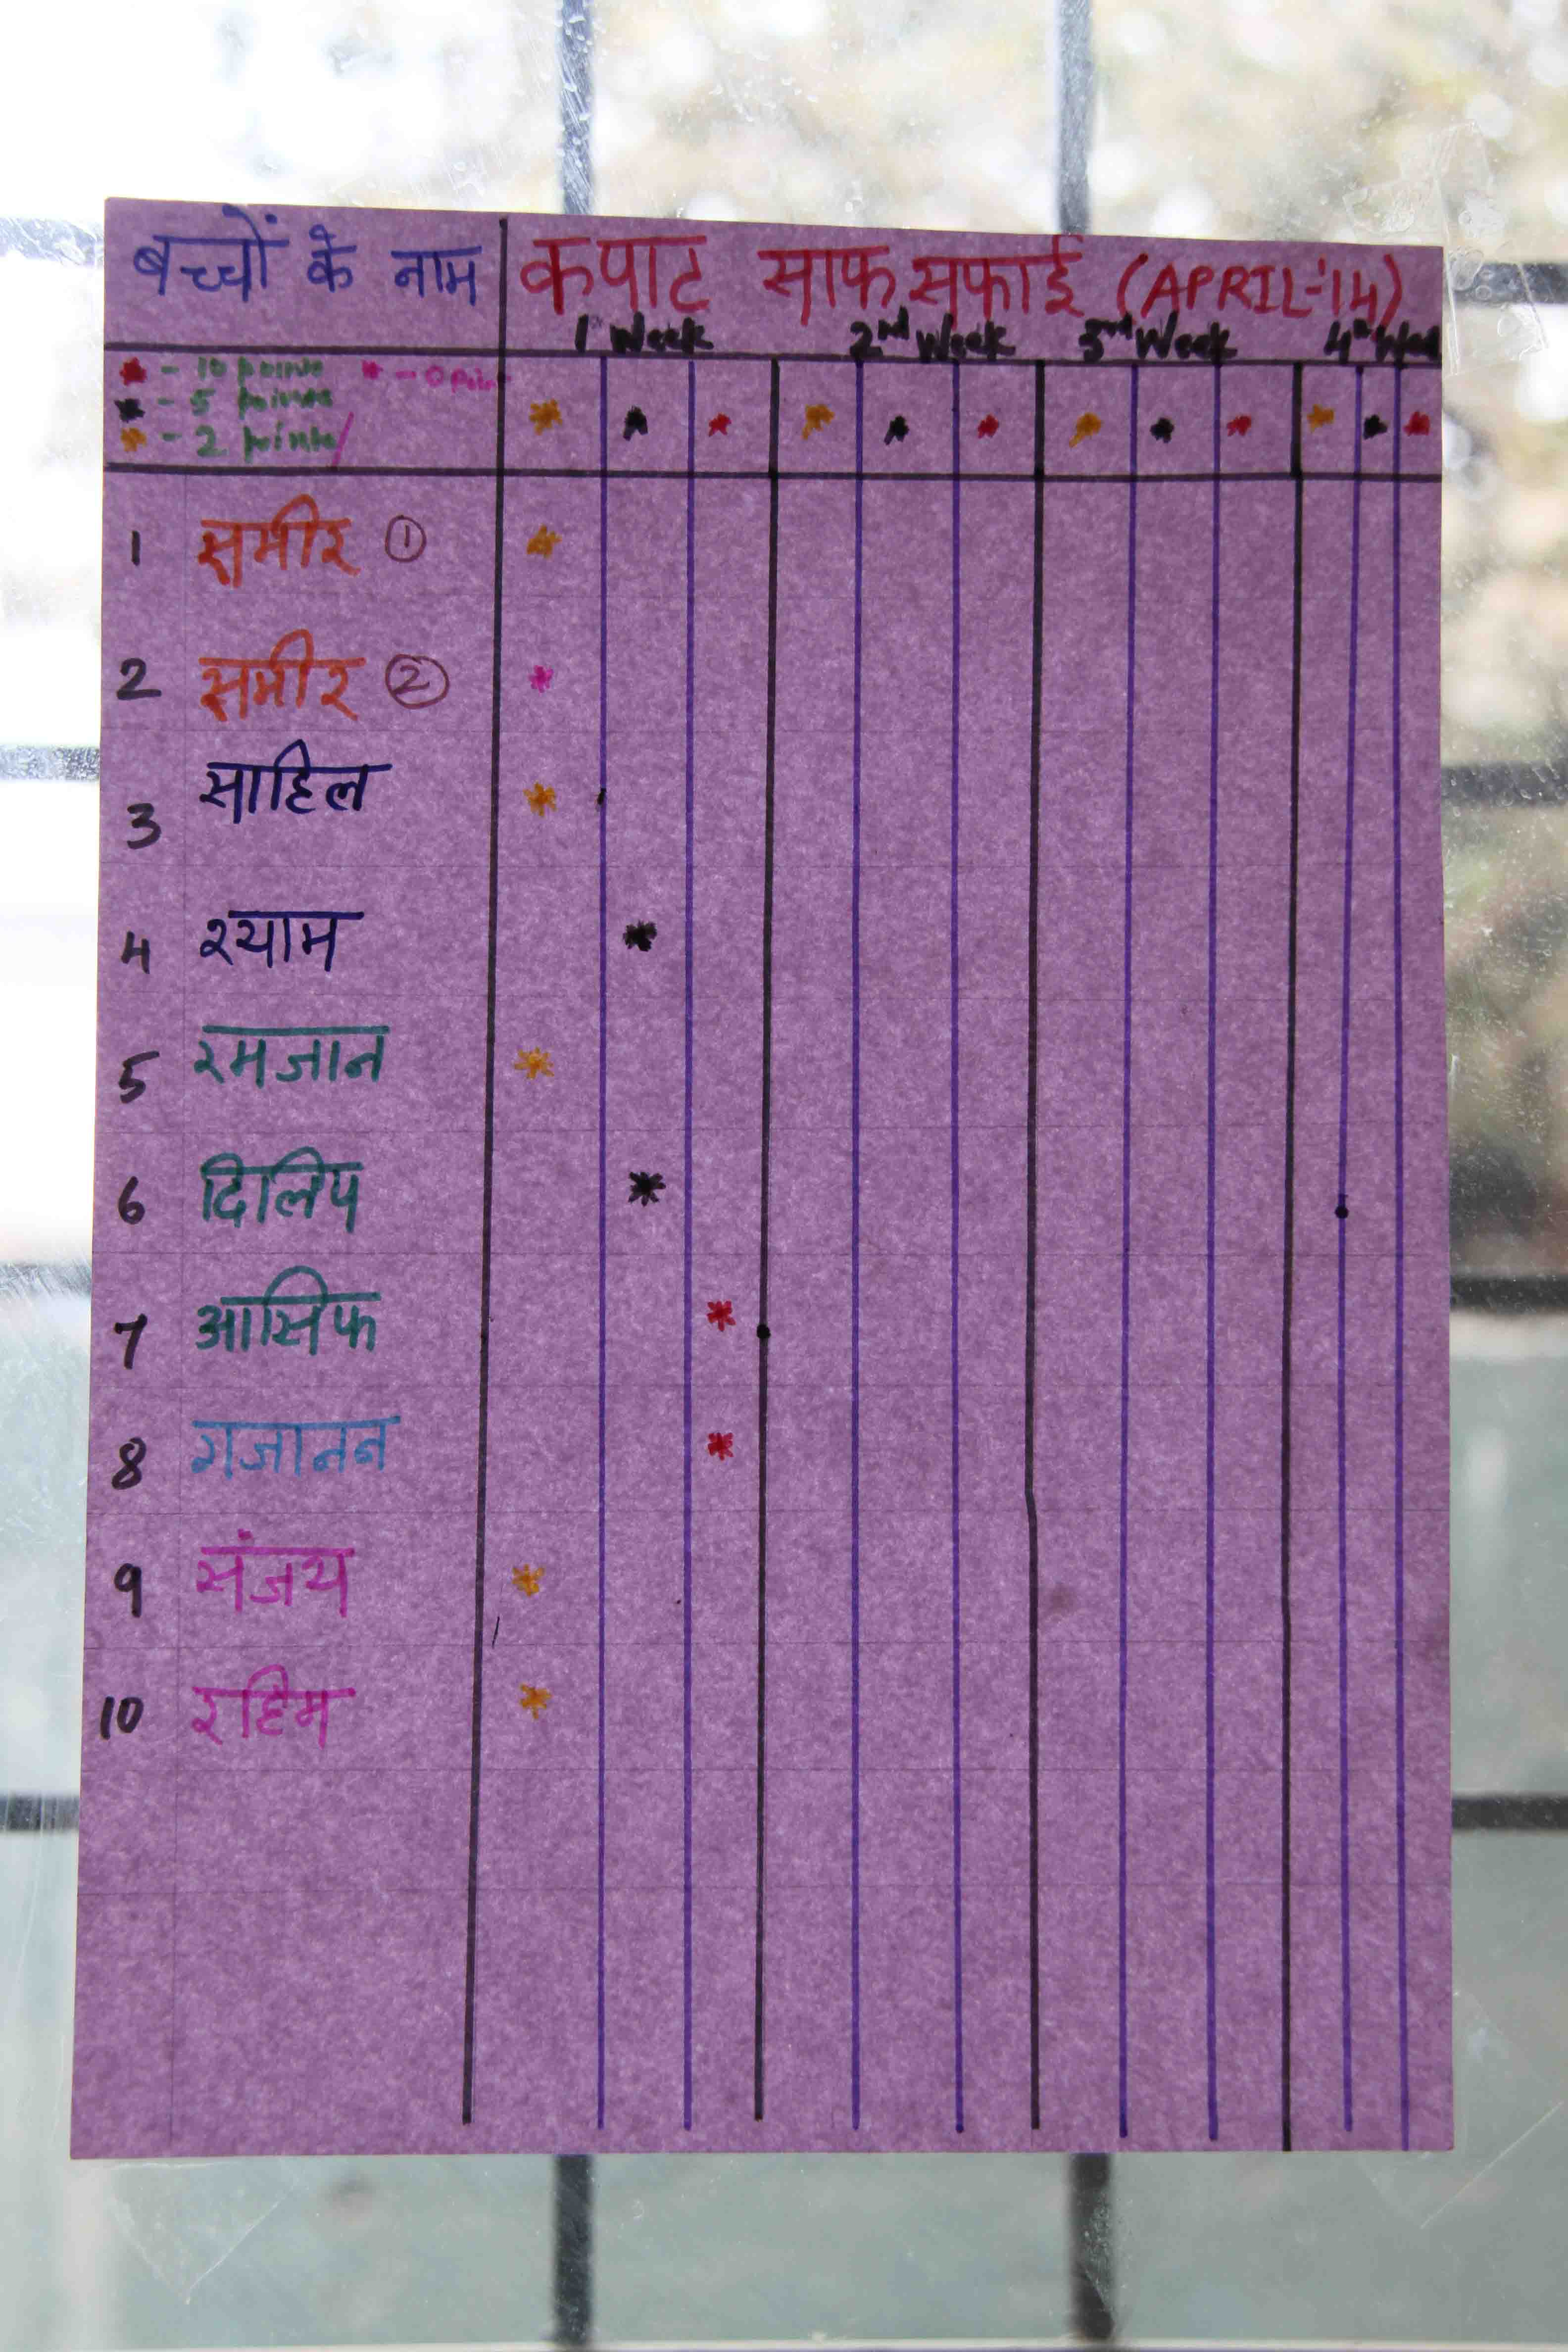 बच्चों के नाम कपाट साफ सफाई (APRIL-'14)
1st Week 2nd Week 3rd Week 4th Week
* - 10 points * - 0 point
* - 5 points
* - 2 points/
1 समीर ①
2 समीर ②
3 साहिल
4 श्याम
5 रमजान
6 दिलिप
7 आसिफ
8 गजानन
9 संजय
10 रहिम